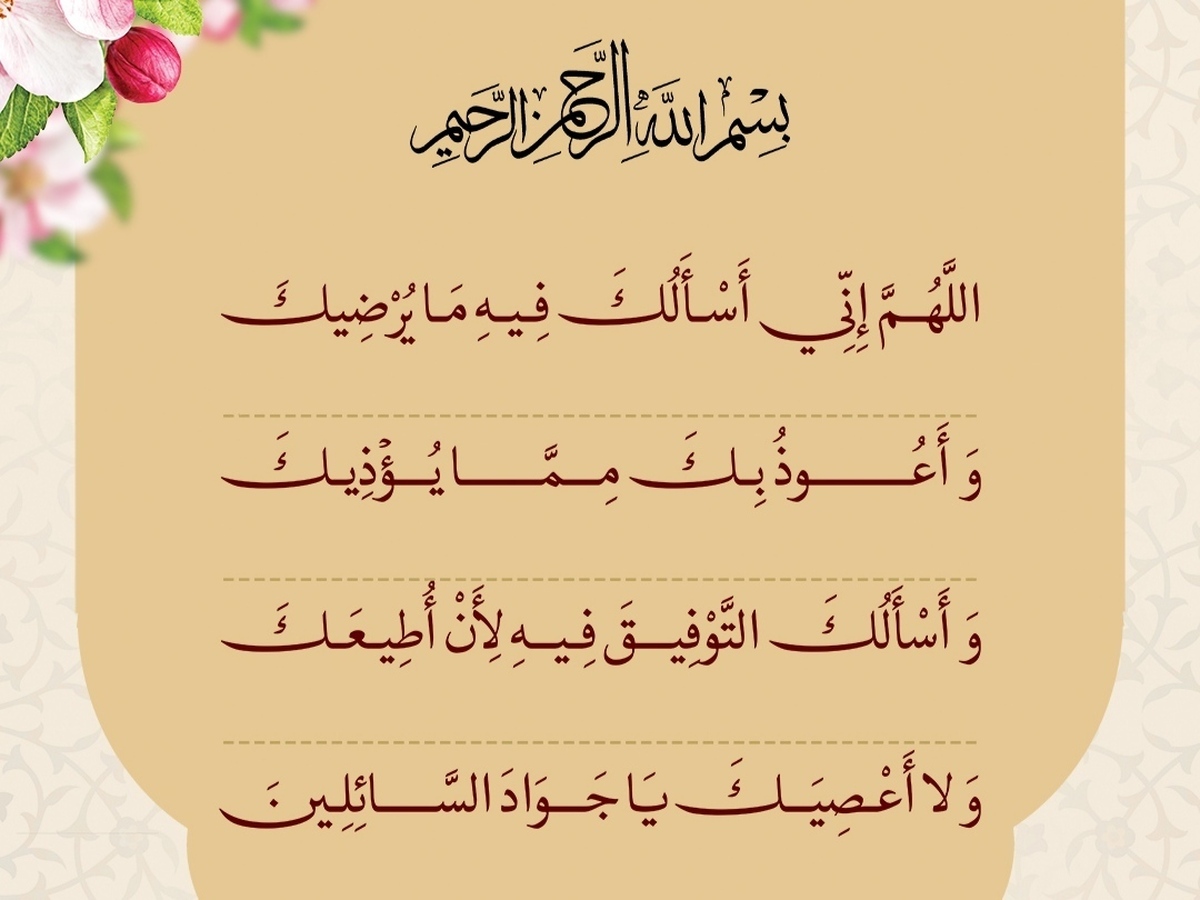 بِسْمِ اللَّهِ الرَّحْمٰنِ الرَّحِيمِ
اللَّهُمَّ إِنِّي أَسْأَلُكَ فِيهِ مَا يُرْضِيكَ
وَ أَعُوذُ بِكَ مِمَّا يُؤْذِيكَ
وَ أَسْأَلُكَ التَّوْفِيقَ فِيهِ لِأَنْ أُطِيعَكَ
وَ لا أَعْصِيَكَ يَا جَوَادَ السَّائِلِينَ